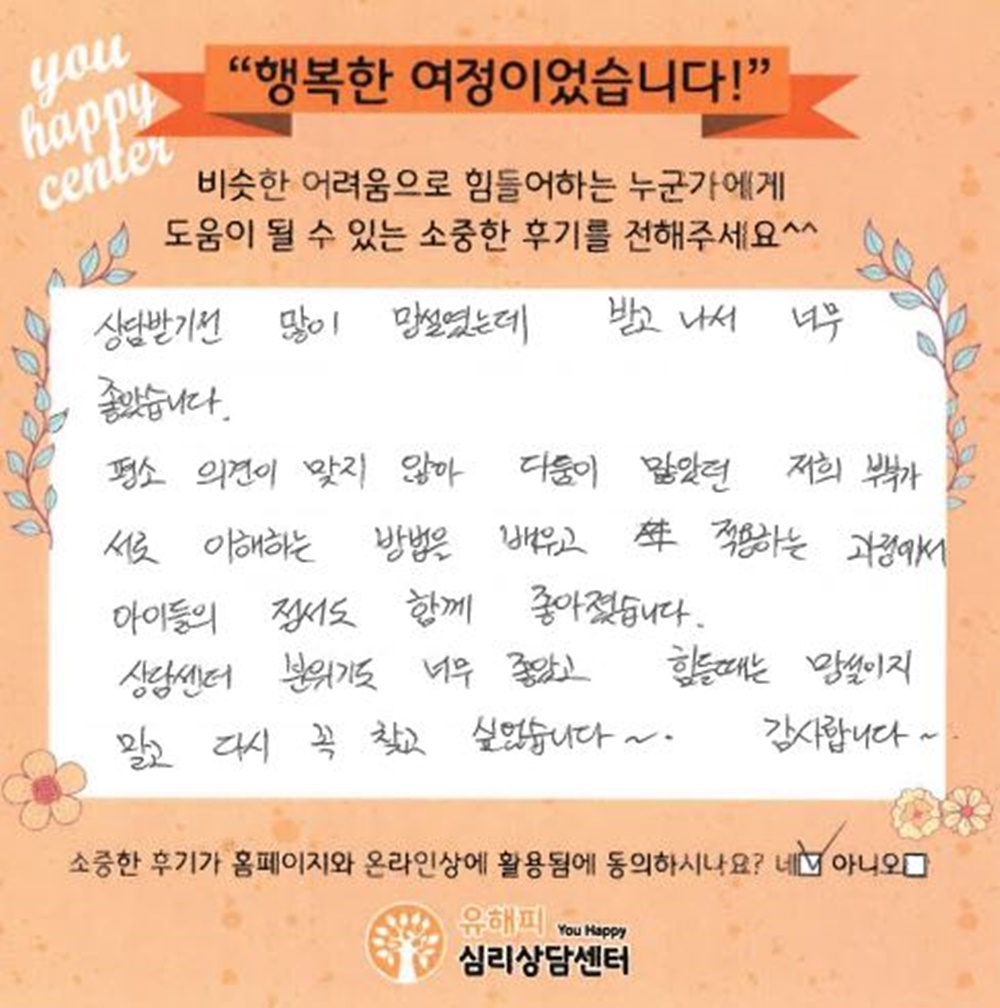 you
happy
center
“행복한 여정이었습니다!”
비슷한 어려움으로 힘들어하는 누군가에게
도움이 될 수 있는 소중한 후기를 전해주세요^^
상담받기전 많이 망설였는데 받고 나서 너무
좋았습니다.
평소 의견이 맞지 않아 다툼이 많았던 저희 부부가
서로 이해하는 방법을 배우고 적용하는 과정에서
아이들의 정서도 함께 좋아졌습니다.
상담센터 분위기도 너무 좋았고 힘들때는 망설이지
말고 다시 꼭 찾고 싶었습니다~. 감사합니다~
소중한 후기가 홈페이지와 온라인상에 활용됨에 동의하시나요? 네 아니오
유해피 You Happy
심리상담센터